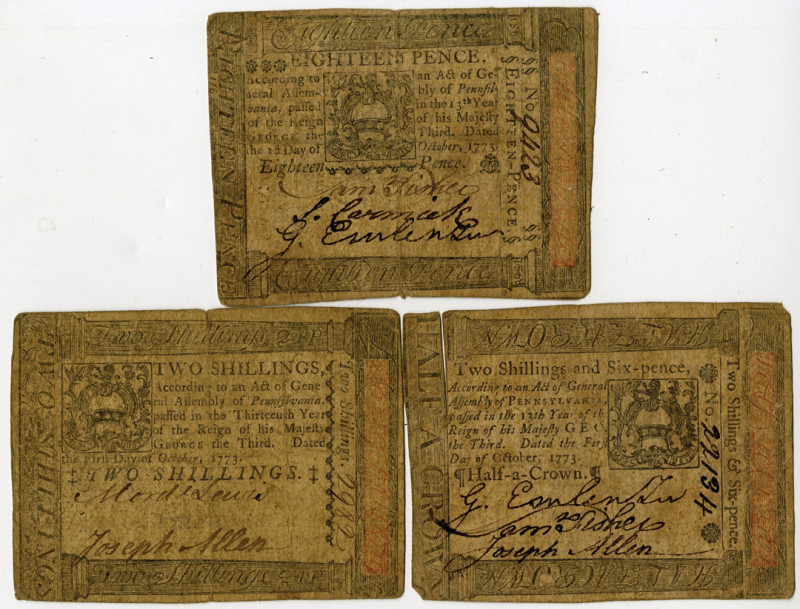 Eighteen Pence
EIGHTEEN PENCE.
According to an Act of Ge-
neral Assem- bly of Pennsyl-
vania, passed in the 13th Year
of the Reign of his Majesty
GEORGE the Third. Dated
the 1st Day of October, 1773.
Eighteen Pence.
Sam Fisher
J. Cormick
G. Emlen Junr
Eighteen Pence
EIGHTEEN PENCE
No 9483
EIGHTEEN-PENCE
Two Shillings 24 P
TWO SHILLINGS,
According to an Act of Gene
ral Assembly of Pennsylvania,
passed in the Thirteenth Year
of the Reign of his Majesty
GEORGE the Third. Dated
the First Day of October, 1773.
‡‡ TWO SHILLINGS. ‡
Mord Lewis
Joseph Allen
Two Shillings 24 P
TWO SHILLINGS
Two Shillings.
HALF A CROWN
Two Shillings and Six-pence,
According to an Act of General
Assembly of PENNSYLVANIA,
passed in the 13th Year of th
Reign of his Majesty GEO
the Third. Dated the Fir
Day of October, 1773.
¶Half-a-Crown.¶
G. Emlen Junr
Sam Fisher
Joseph Allen
HALF A CROWN
HALF-A-CROWN
Two Shillings & Six-pence.
No. 22134